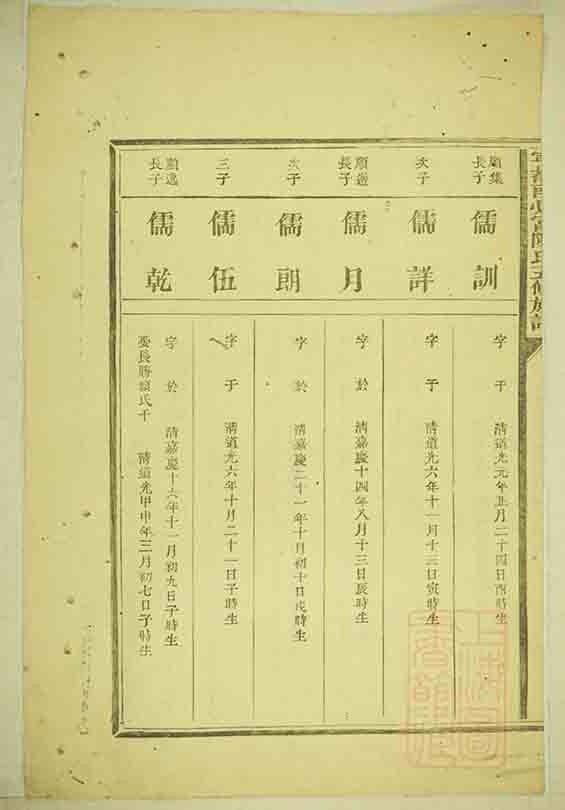 顯集長子
儒訓
字 于 清道光元年正月二十四日酉時生
次子
儒詳
字 于 清道光六年十一月十三日寅時生
長子
儒月
字 於 清嘉慶十四年八月十三日辰時生
次子
儒朗
字 於 清嘉慶二十一年十月初十日戌時生
三子
儒伍
字 于 清道光六年十月二十一日子時生
長子
儒乾
字 於 清嘉慶十六年十一月初九日子時生
娶長勝 氏于 清道光甲申年三月初七日子時生